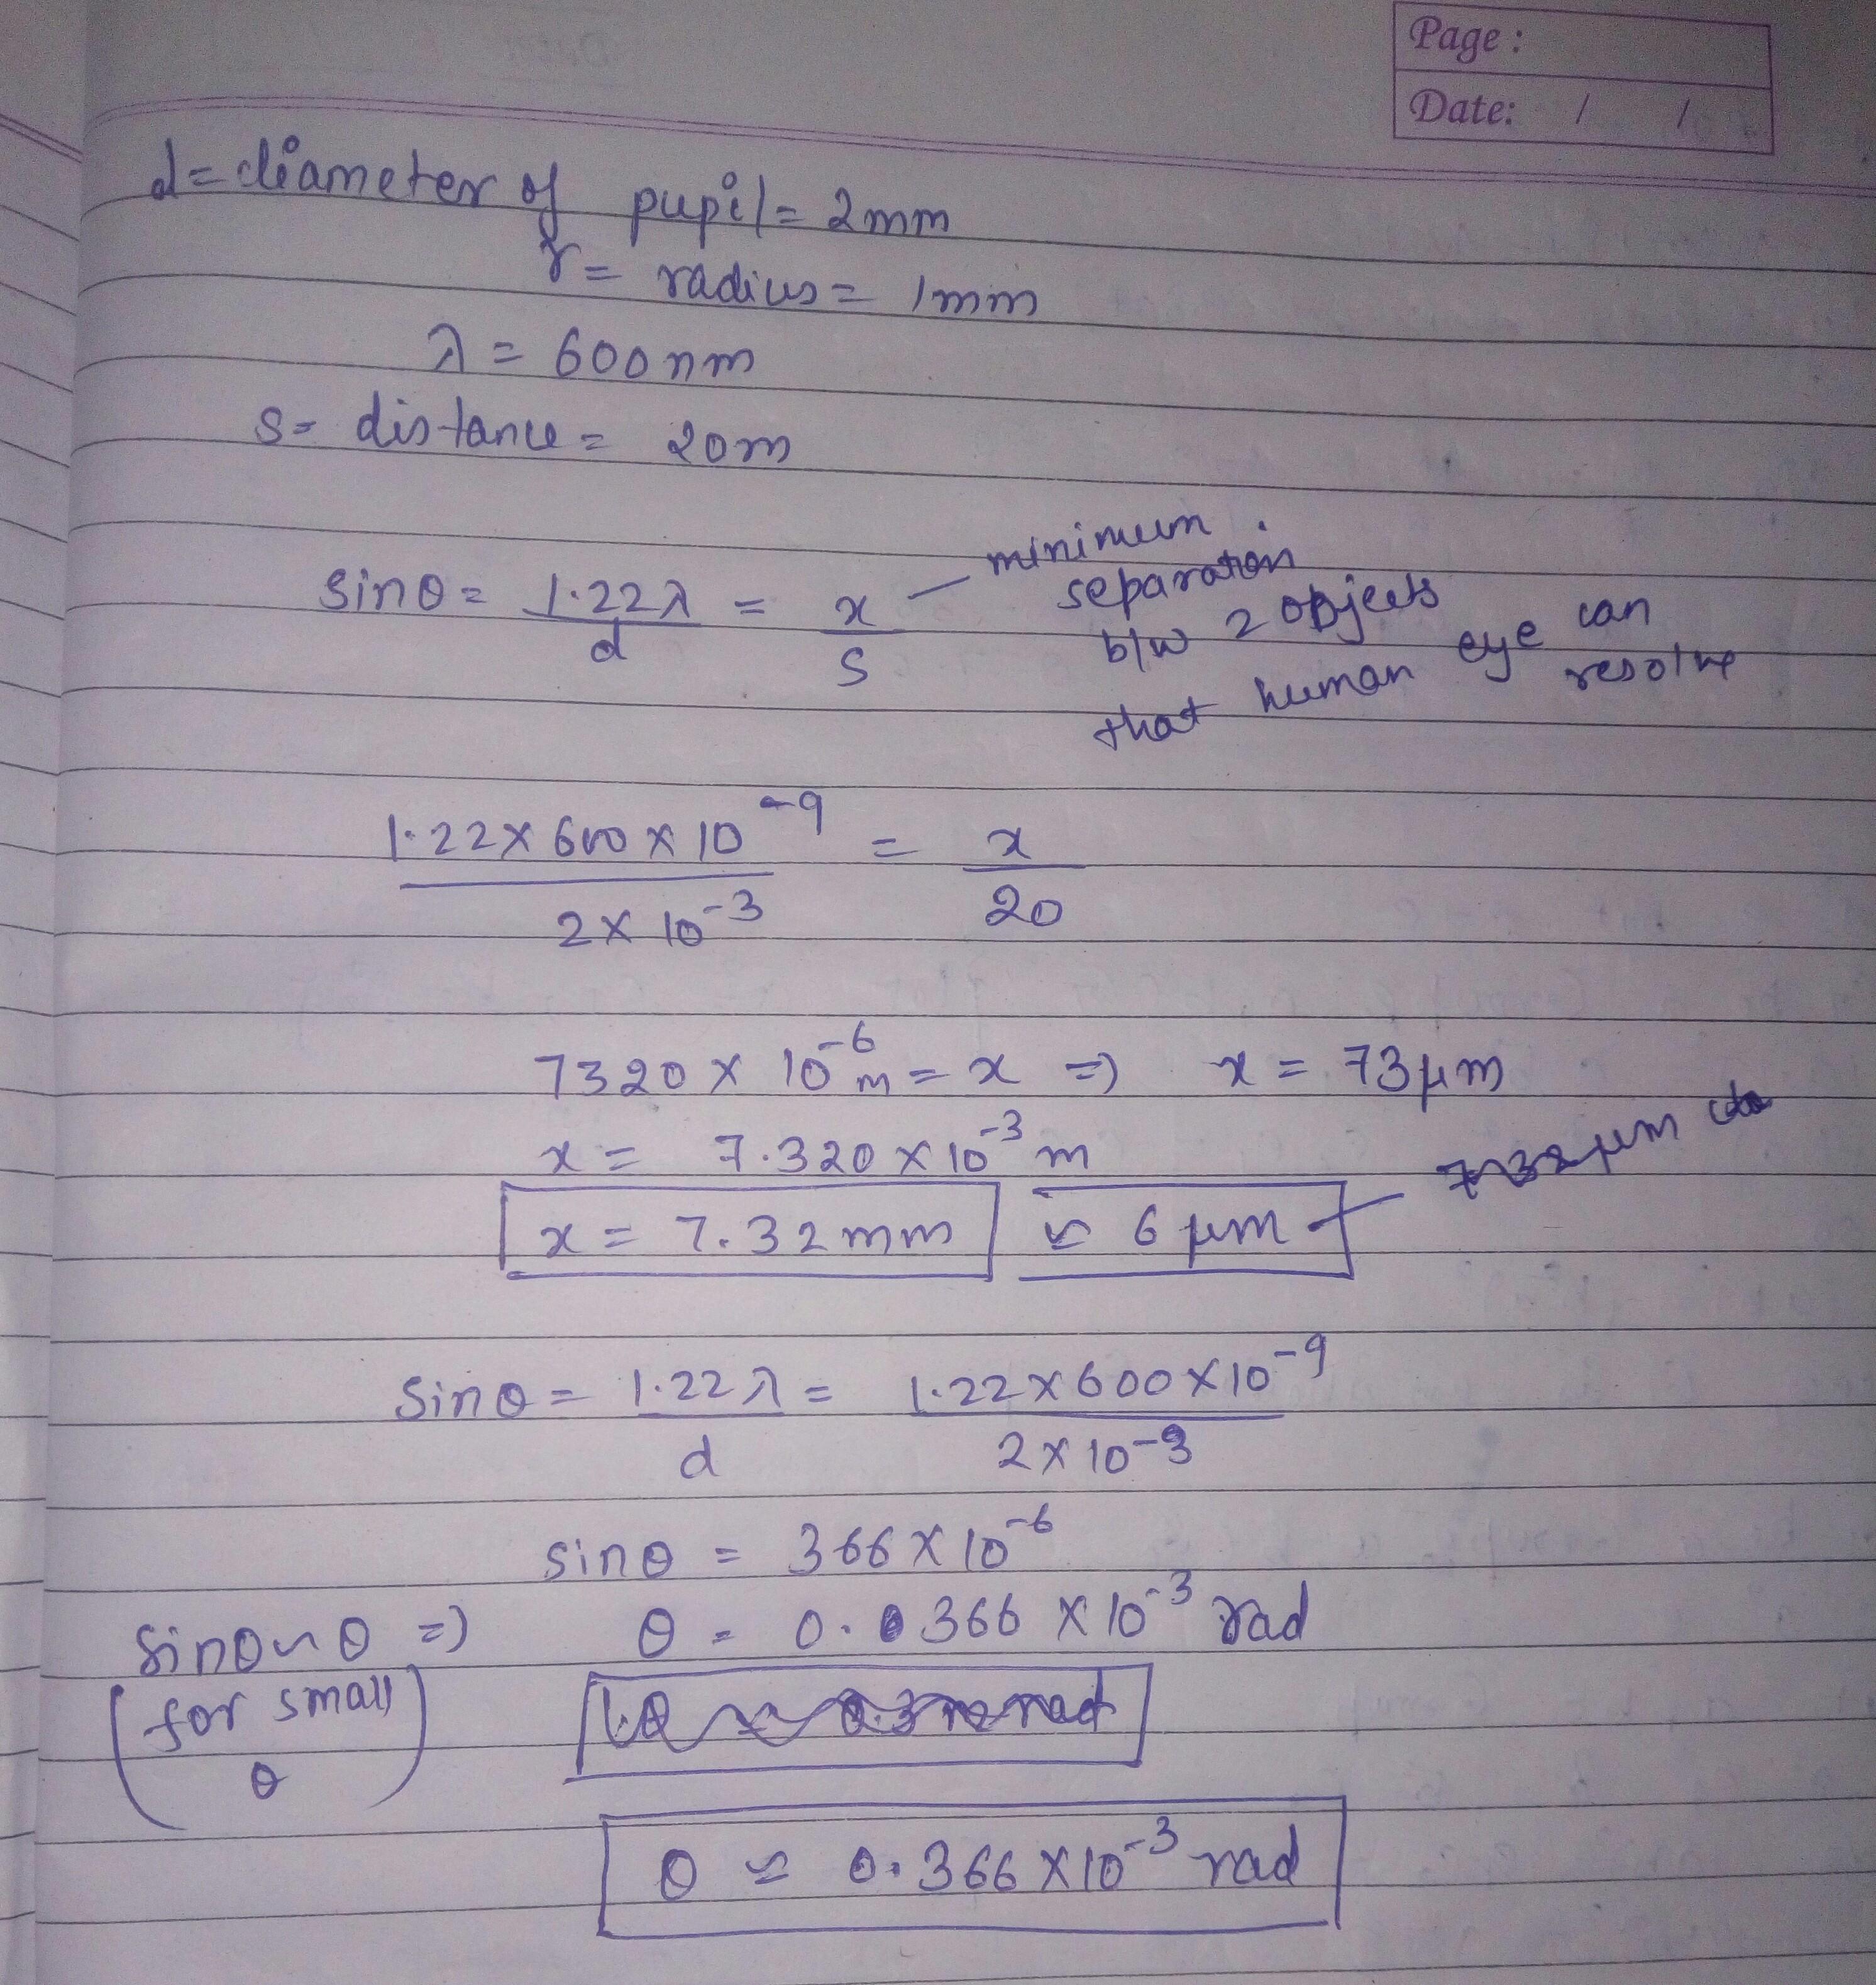 Page :
Date: / /
d = diameter of pupil = 2mm
r = radius = 1mm
λ = 600nm
s = distance = 20m
sinθ = 1.22λ/d = x/s — minimum separation b/w 2 objects that human eye can resolve
1.22 x 600 x 10^-9 / 2 x 10^-3 = x/20
7320 x 10^-6 m = x => x = 73μm
x = 7.320 x 10^-3 m
x = 7.32mm ≈ 6μm
sinθ = 1.22λ/d = 1.22 x 600 x 10^-9 / 2 x 10^-3
sinθ = 366 x 10^-6
sinθ ~ θ => θ = 0.366 x 10^-3 rad
(for small θ)
θ ≈ 0.366 x 10^-3 rad